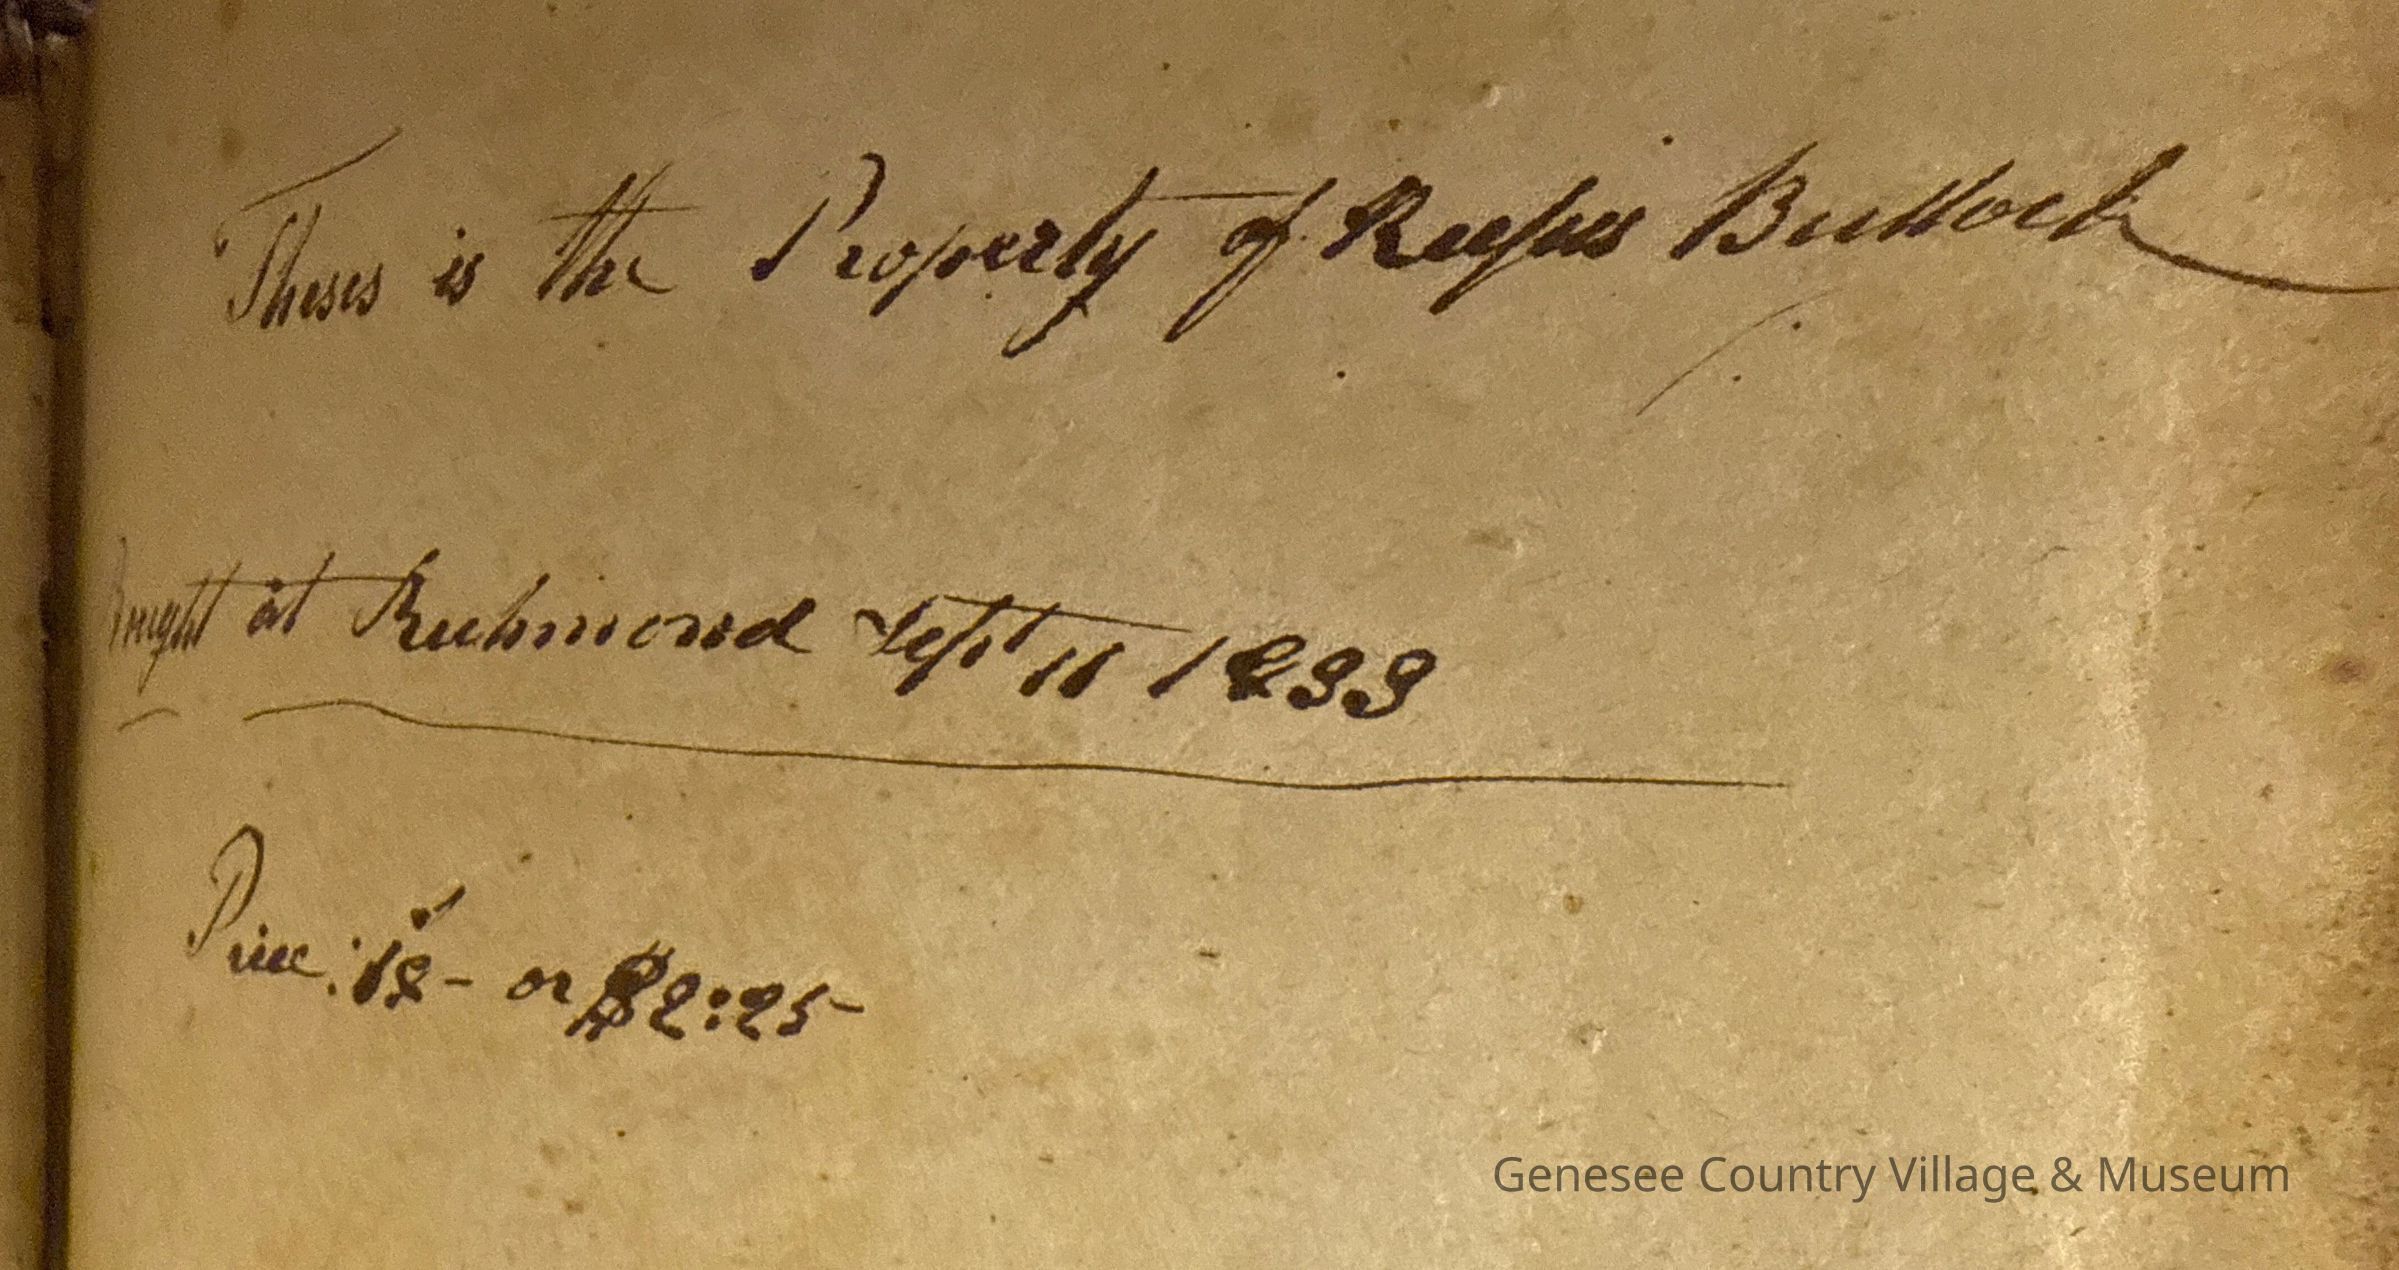 Theses is the Property of Rufus Bullock
Bought at Richmond Sept 11 1833
Price: 18/- or $2:25-
Genesee Country Village & Museum